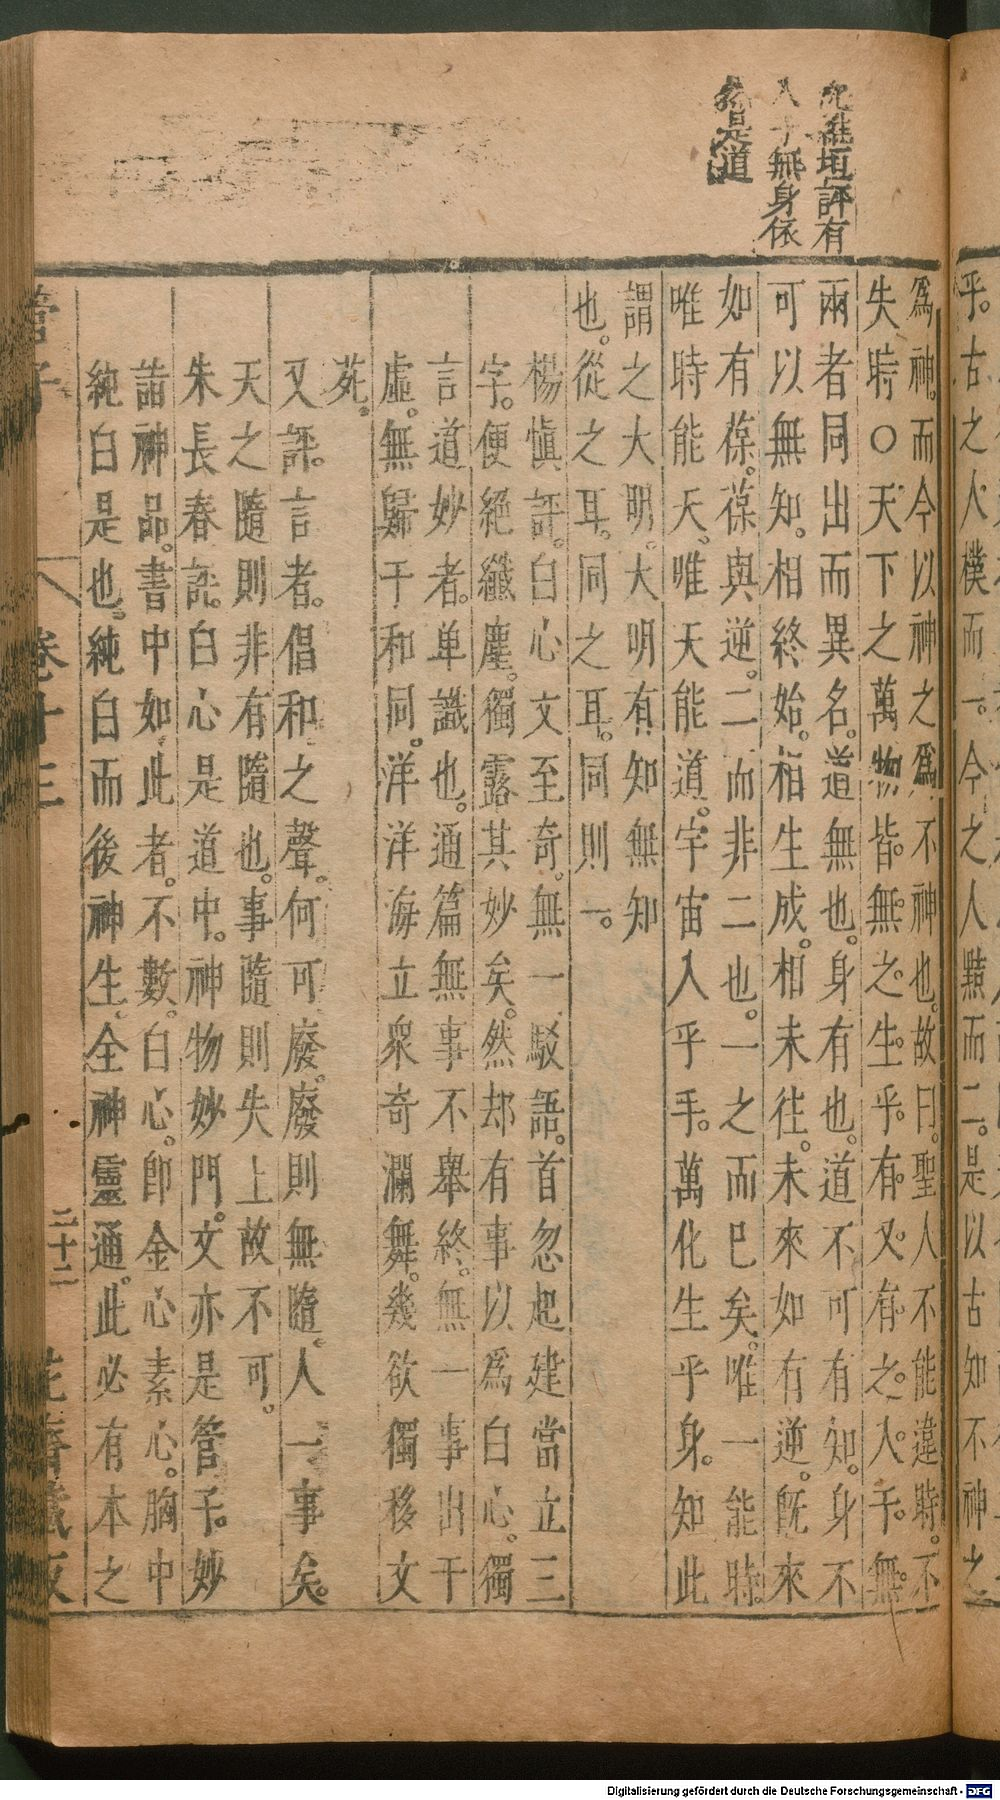 乎。古之人樸而一。今之人黠而二。是以古知不神之
為神。而今以神之為不神也。故曰。聖人不能違時。不
失時○天下之萬物皆無之生乎。有又有之入于無。
兩者同出而異名。道無也。身有也。道不可有知。身不
可以無知。相終始。相生成。相未往。未來如有逆。旣來
如有葆。葆與逆。二而非二也。一之而已矣。唯一能時。
唯時能天。唯天能道。宇宙入乎手。萬化生乎身。知此
謂之大明。大明有知無知
也。從之耳。同之耳。同則一。
楊愼評。白心文至奇。無一駁語。首忽起建當立三
字。便絕纖塵。獨露其妙矣。然却有事以爲白心。獨
言道妙者。单識也。通篇無事不舉終。無一事出于
虛。無歸于和同。洋洋海立衆奇瀾舞。幾欲獨移文
苑。
又評。言者。倡和之聲。何可廢。廢則無隨。人一事矣。
天之隨則非有隨也。事隨則失上故不可。
朱長春評。白心是道中。神物妙門。文亦是管子。妙
詣神品。書中如此者。不數。白心。卽金心素心。胸中
純白是也。純白而後神生。全神靈通。此必有本之
評有
無身依
是道
管子
卷十三
二十二
花齋藏板
Digitalisierung gefördert durch die Deutsche Forschungsgemeinschaft - DFG